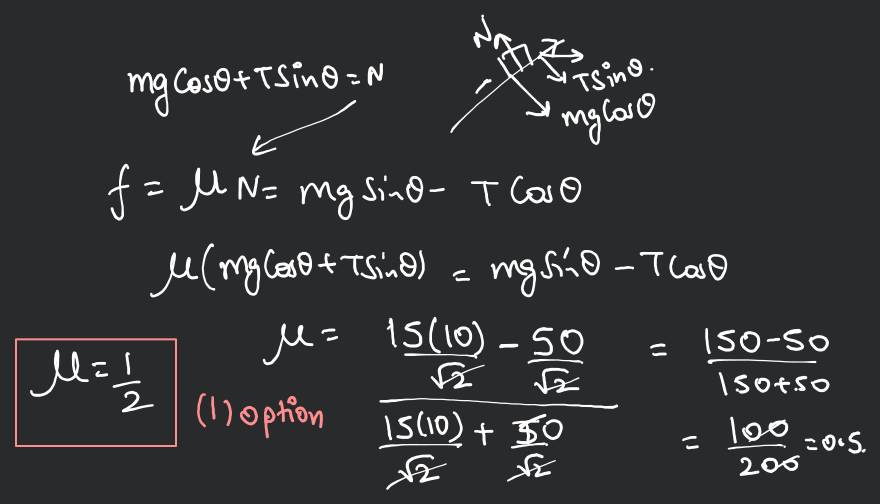 mg Cosθ + T Sinθ = N
N
T Sinθ.
mg Cosθ
f = μN = mg Sinθ - T Cosθ
μ(mg Cosθ + T Sinθ) = mg Sinθ - T Cosθ
μ = (15(10)/√2 - 50/√2) / (15(10)/√2 + 50/√2) = (150-50)/(150+50)
= 100/200 = 0.5.
μ = 1/2
(1) option